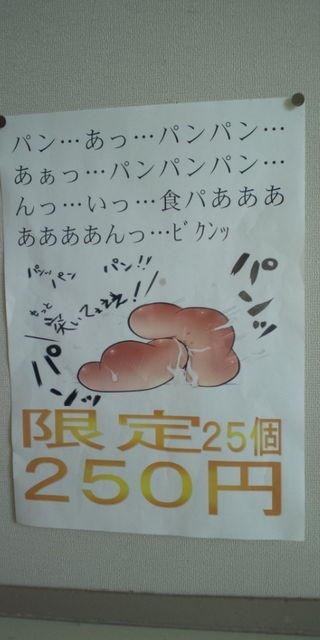 パン…あっ…パンパン…
あぁっ…パンパンパン…
んっ…いっ…食パあああ
ああああんっ…ﾋﾞｸﾝｯ
パンッ パン パン!!
パンッ
もっと
突いてぇぇぇ!!
パンッ
限定25個
250円